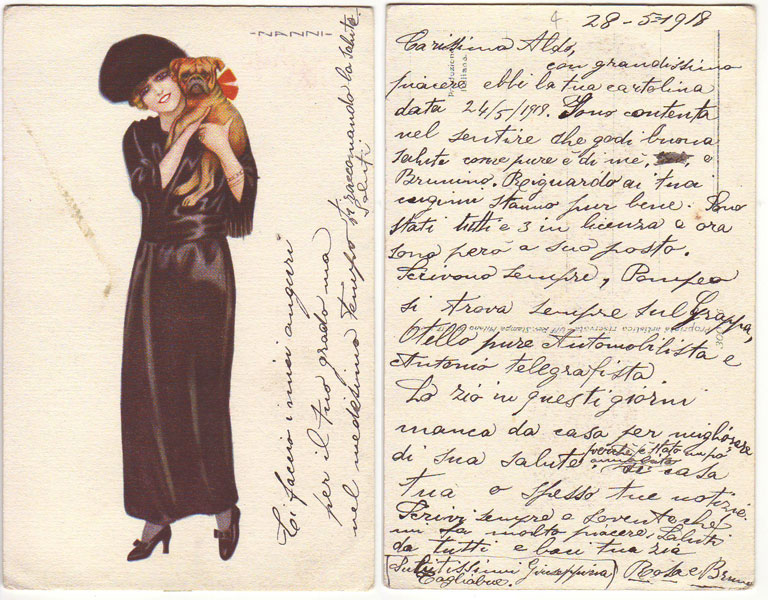 NANNI
Ti faccio i miei auguri
per il tuo grado ma
nel medesimo tempo ti raccomando la salute.
Saluti
4
28-5-1918
Carissimo Aldo,
con grandissimo
piacere ebbi la tua cartolina
data 24/5/1918. Sono contenta
nel sentire che godi buona
salute come pure è di me, e
Brunino. Reiguardo ai tuoi
cugini stanno pur bene. Sono
stati tutti e 3 in licenza e ora
sono però a suo posto.
Scrivono sempre, Pompeo
si trova sempre sul Grappa,
Otello pure Automobilista e
Antonio telegrafista
Lo zio in questi giorni
manca da casa per migliorare
di sua salute perché è stato un po'
ammalato di casa
tua o spesso tue notizie.
Scrivi sempre e sovente che
mi fa molto piacere, Saluti
da tutti e baci tua zia
Rosa e Bruno
Salutissimi Giuseppina
Cagliabue.
Produzione
Italiana.
Proprietà artistica riservata - Uff. Rev. Stampa Milano